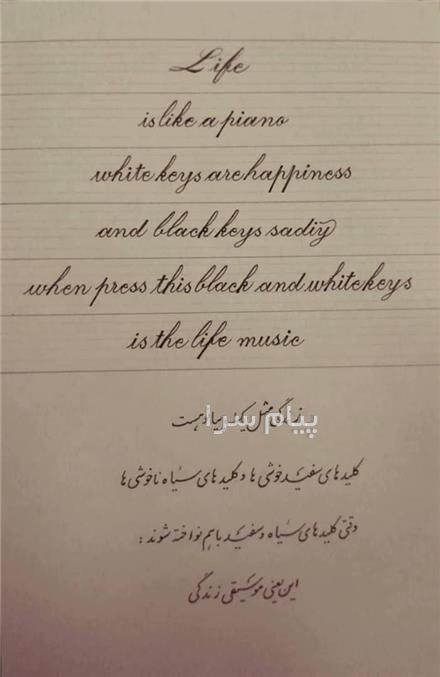 Life
is like a piano
white keys are happiness
and black keys sadiy
when press this black and white keys
is the life music
زندگی مثل یک پیانو هست
پیام سرا
کلیدهای سفید خوشی ها و کلیدهای سیاه ناخوشی ها
وقتی کلیدهای سیاه و سفید باهم نواخته شوند :
این یعنی موسیقی زندگی